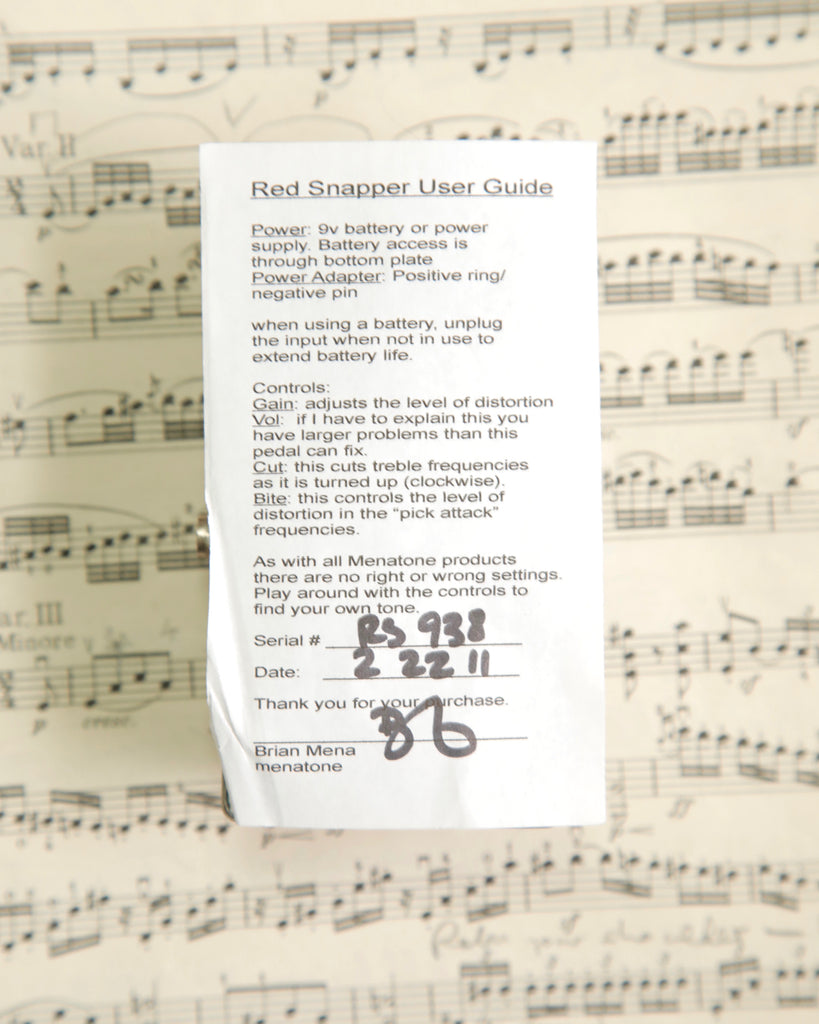 Var. II
Red Snapper User Guide
Power: 9v battery or power
supply. Battery access is
through bottom plate
Power Adapter: Positive ring/
negative pin
when using a battery, unplug
the input when not in use to
extend battery life.
Controls:
Gain: adjusts the level of distortion
Vol: if I have to explain this you
have larger problems than this
pedal can fix.
Cut: this cuts treble frequencies
as it is turned up (clockwise).
Bite: this controls the level of
distortion in the “pick attack”
frequencies.
As with all Menatone products
there are no right or wrong settings.
Play around with the controls to
find your own tone.
Serial # RS 938
Date: 2 22 11
Thank you for your purchase.
Brian Mena
menatone
ar. III
Minore
cresc.